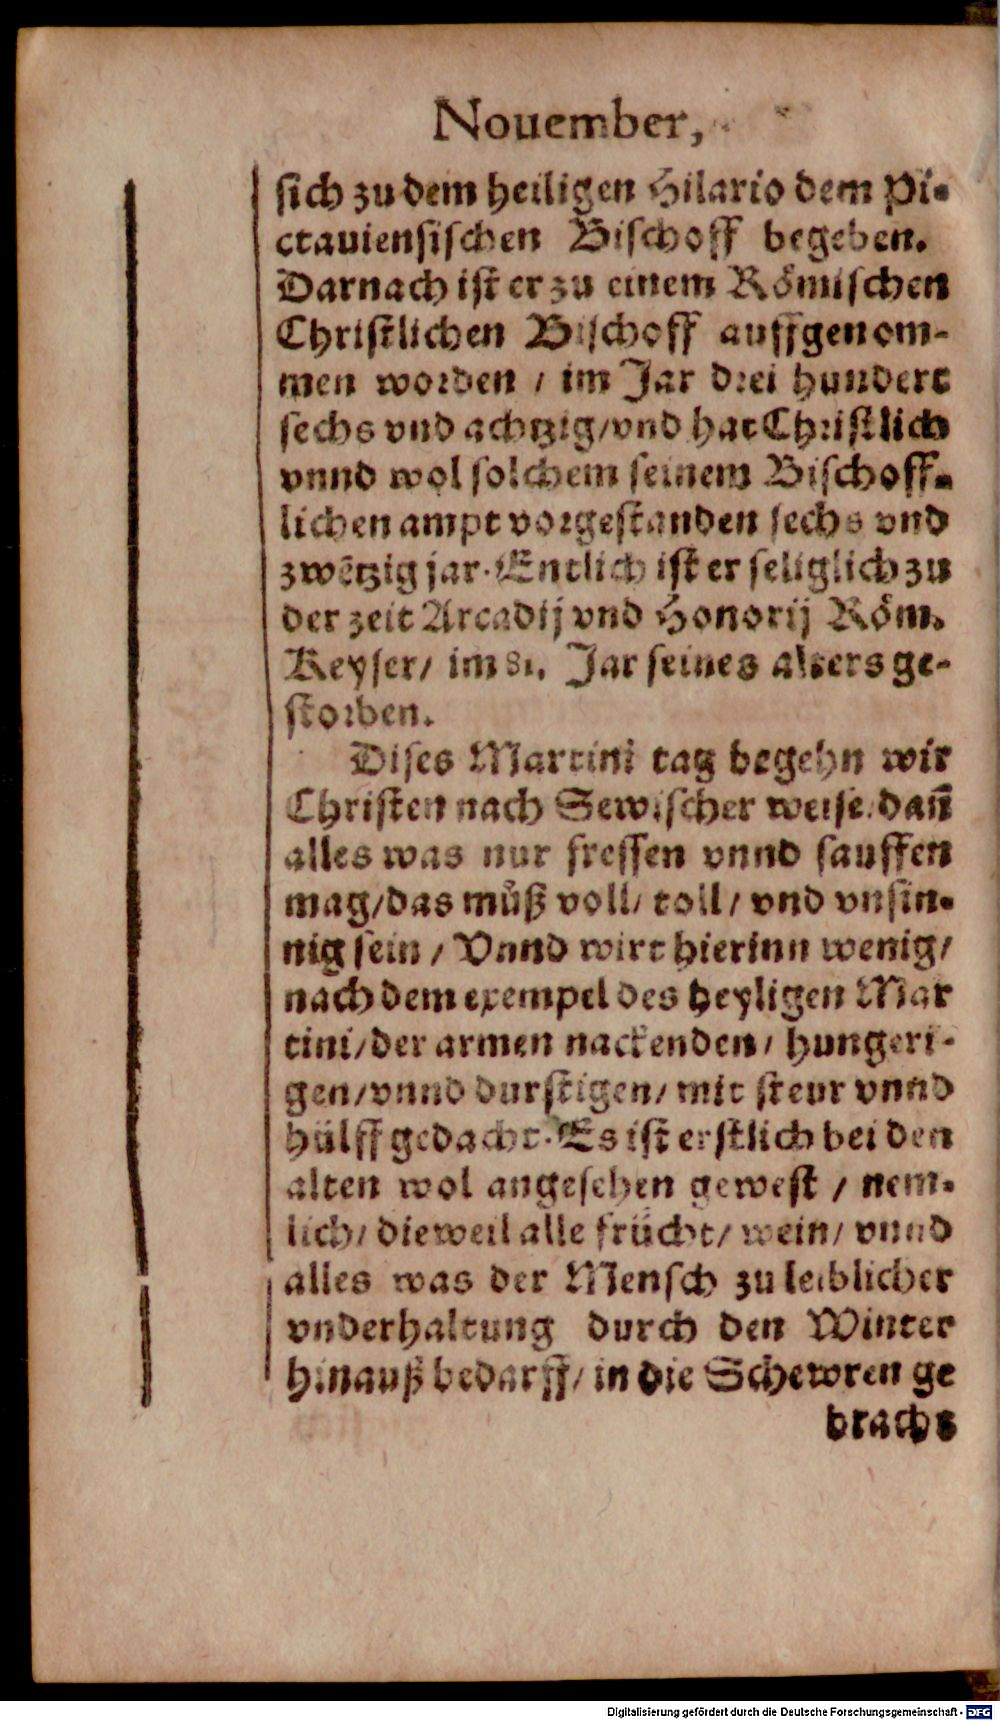 Nouember,
sich zu dem heiligen Hilario dem Pi-
ctauiensischen Bischoff begeben.
Darnach ist er zu einem Römischen
Christlichen Bischoff auffgenom-
men worden / im Jar drei hundert
sechs vnd achtzig/vnd hat Christlich
vnnd wol solchem seinem Bischoff-
lichen ampt vorgestanden sechs vnd
zwētzig jar. Entlich ist er seliglich zu
der zeit Arcadij vnd Honorij Röm.
Keyser/ im 81. Jar seines alters ge-
storben.
Dises Martini tag begehn wir
Christen nach Sewischer weise/dañ
alles was nur fressen vnnd sauffen
mag/das můß voll/ toll/ vnd vnsin-
nig sein / Vnnd wirt hierinn wenig/
nach dem exempel des heyligen Mar
tini/der armen nackenden/ hungeri-
gen/vnnd durstigen/ mit steur vnnd
hülff gedacht. Es ist erstlich bei den
alten wol angesehen gewest / nem-
lich/ dieweil alle frücht/ wein/ vnnd
alles was der Mensch zu leiblicher
vnderhaltung durch den Winter
hinauß bedarff/ in die Schewren ge
bracht
Digitalisierung gefördert durch die Deutsche Forschungsgemeinschaft - DFG